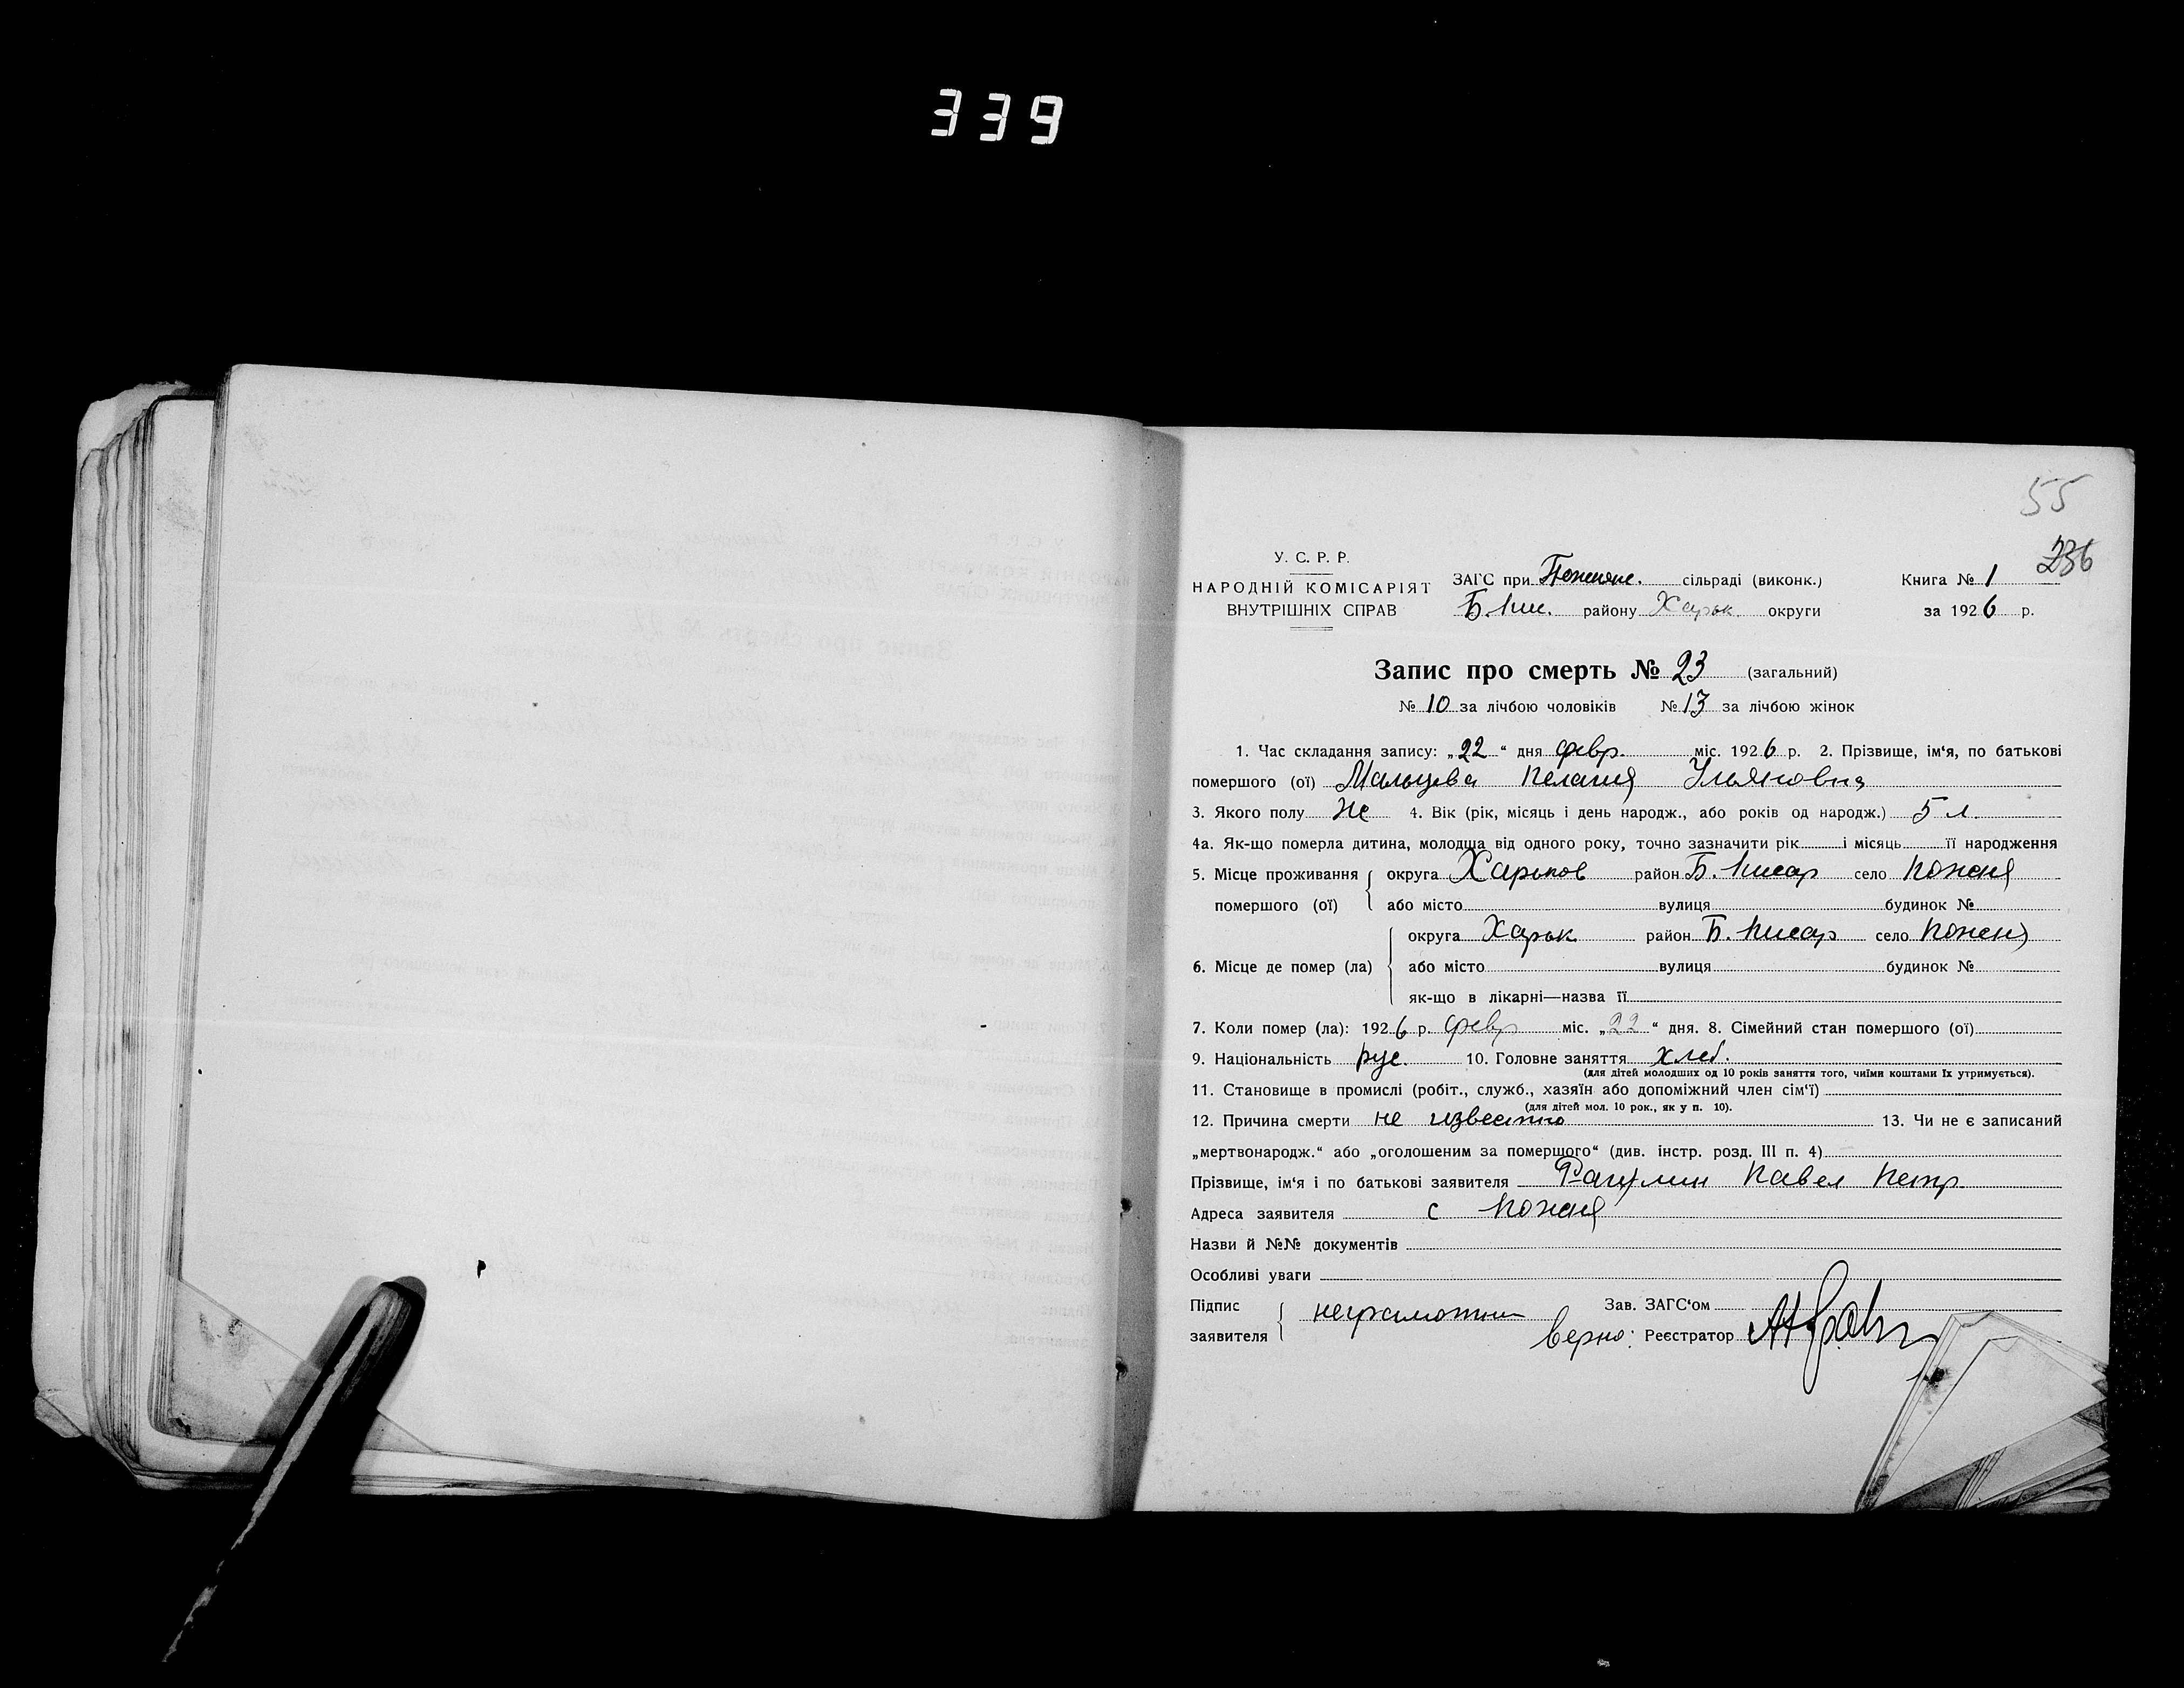 339
55
236
У. С. Р. Р.
НАРОДНІЙ КОМІСАРІЯТ
ВНУТРІШНІХ СПРАВ
ЗАГС при сільраді (виконк.)
Б. Пис. району Харьк. округи
Книга № 1
за 1926 р.
Запис про смерть № 23 (загальний)
№ 10 за лічбою чоловіків № 13 за лічбою жінок
1. Час складання запису: „22“ дня февр. міс. 1926 р. 2. Прізвище, ім‘я, по батькові
помершого (ої) Мальцева Пелагия Ульяновна
3. Якого полу Же 4. Вік (рік, місяць і день народж., або років од народж.) 5 л.
4а. Як-що померла дитина, молодша від одного року, точно зазначити рік і місяць її народження
5. Місце проживання помершого (ої) округа Харьков район Б. Писар село Пожня
або місто вулиця будинок №
6. Місце де помер (ла) округа Харьк район Б. Писар село Пожня
або місто вулиця будинок №
як-що в лікарні—назва її
7. Коли помер (ла): 1926 р. февр міс. „22“ дня. 8. Сімейний стан помершого (ої)
9. Національність рус. 10. Головне заняття хлеб.
(для дітей молодших од 10 років заняття того, чиїми коштами їх утримується).
11. Становище в промислі (робіт., служб., хазяїн або допоміжний член сім‘ї)
(для дітей мол. 10 рок., як у п. 10).
12. Причина смерти не известно 13. Чи не є записаний
„мертвонародж.“ або „оголошеним за помершого“ (див. інстр. розд. III п. 4)
Прізвище, ім‘я і по батькові заявителя Павел Петр.
Адреса заявителя с Пожня
Назви й №№ документів
Особливі уваги
Підпис заявителя неграмотный Зав. ЗАГС‘ом
верно: Реєстратор